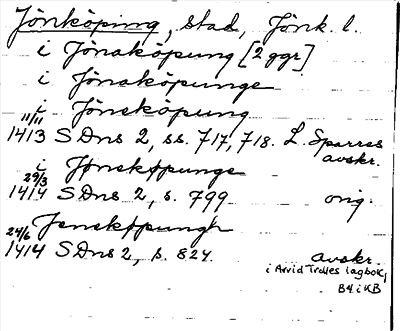 Jönköping, stad, Jönk. l.
i Jönaköpung [2 ggr]
i Jönaköpunge
i Jönsköpung
11/11 1413 SDns 2, ss. 717, 718. L. Sparres avskr.
i Jønskøpunge
29/3 1414 SDns 2, s. 799 orig.
Jenskøpungh
24/6 1414 SDns 2, s. 824. avskr.
i Arvid Trolles lagbok,
B4 i KB